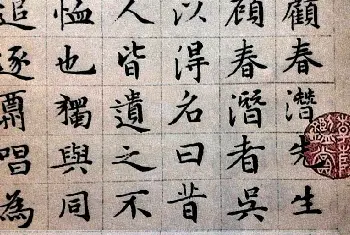 顧春潛先生
顧春潛者吳
以得名曰昔
人皆遺之不
恤也獨與同
追逐唱為